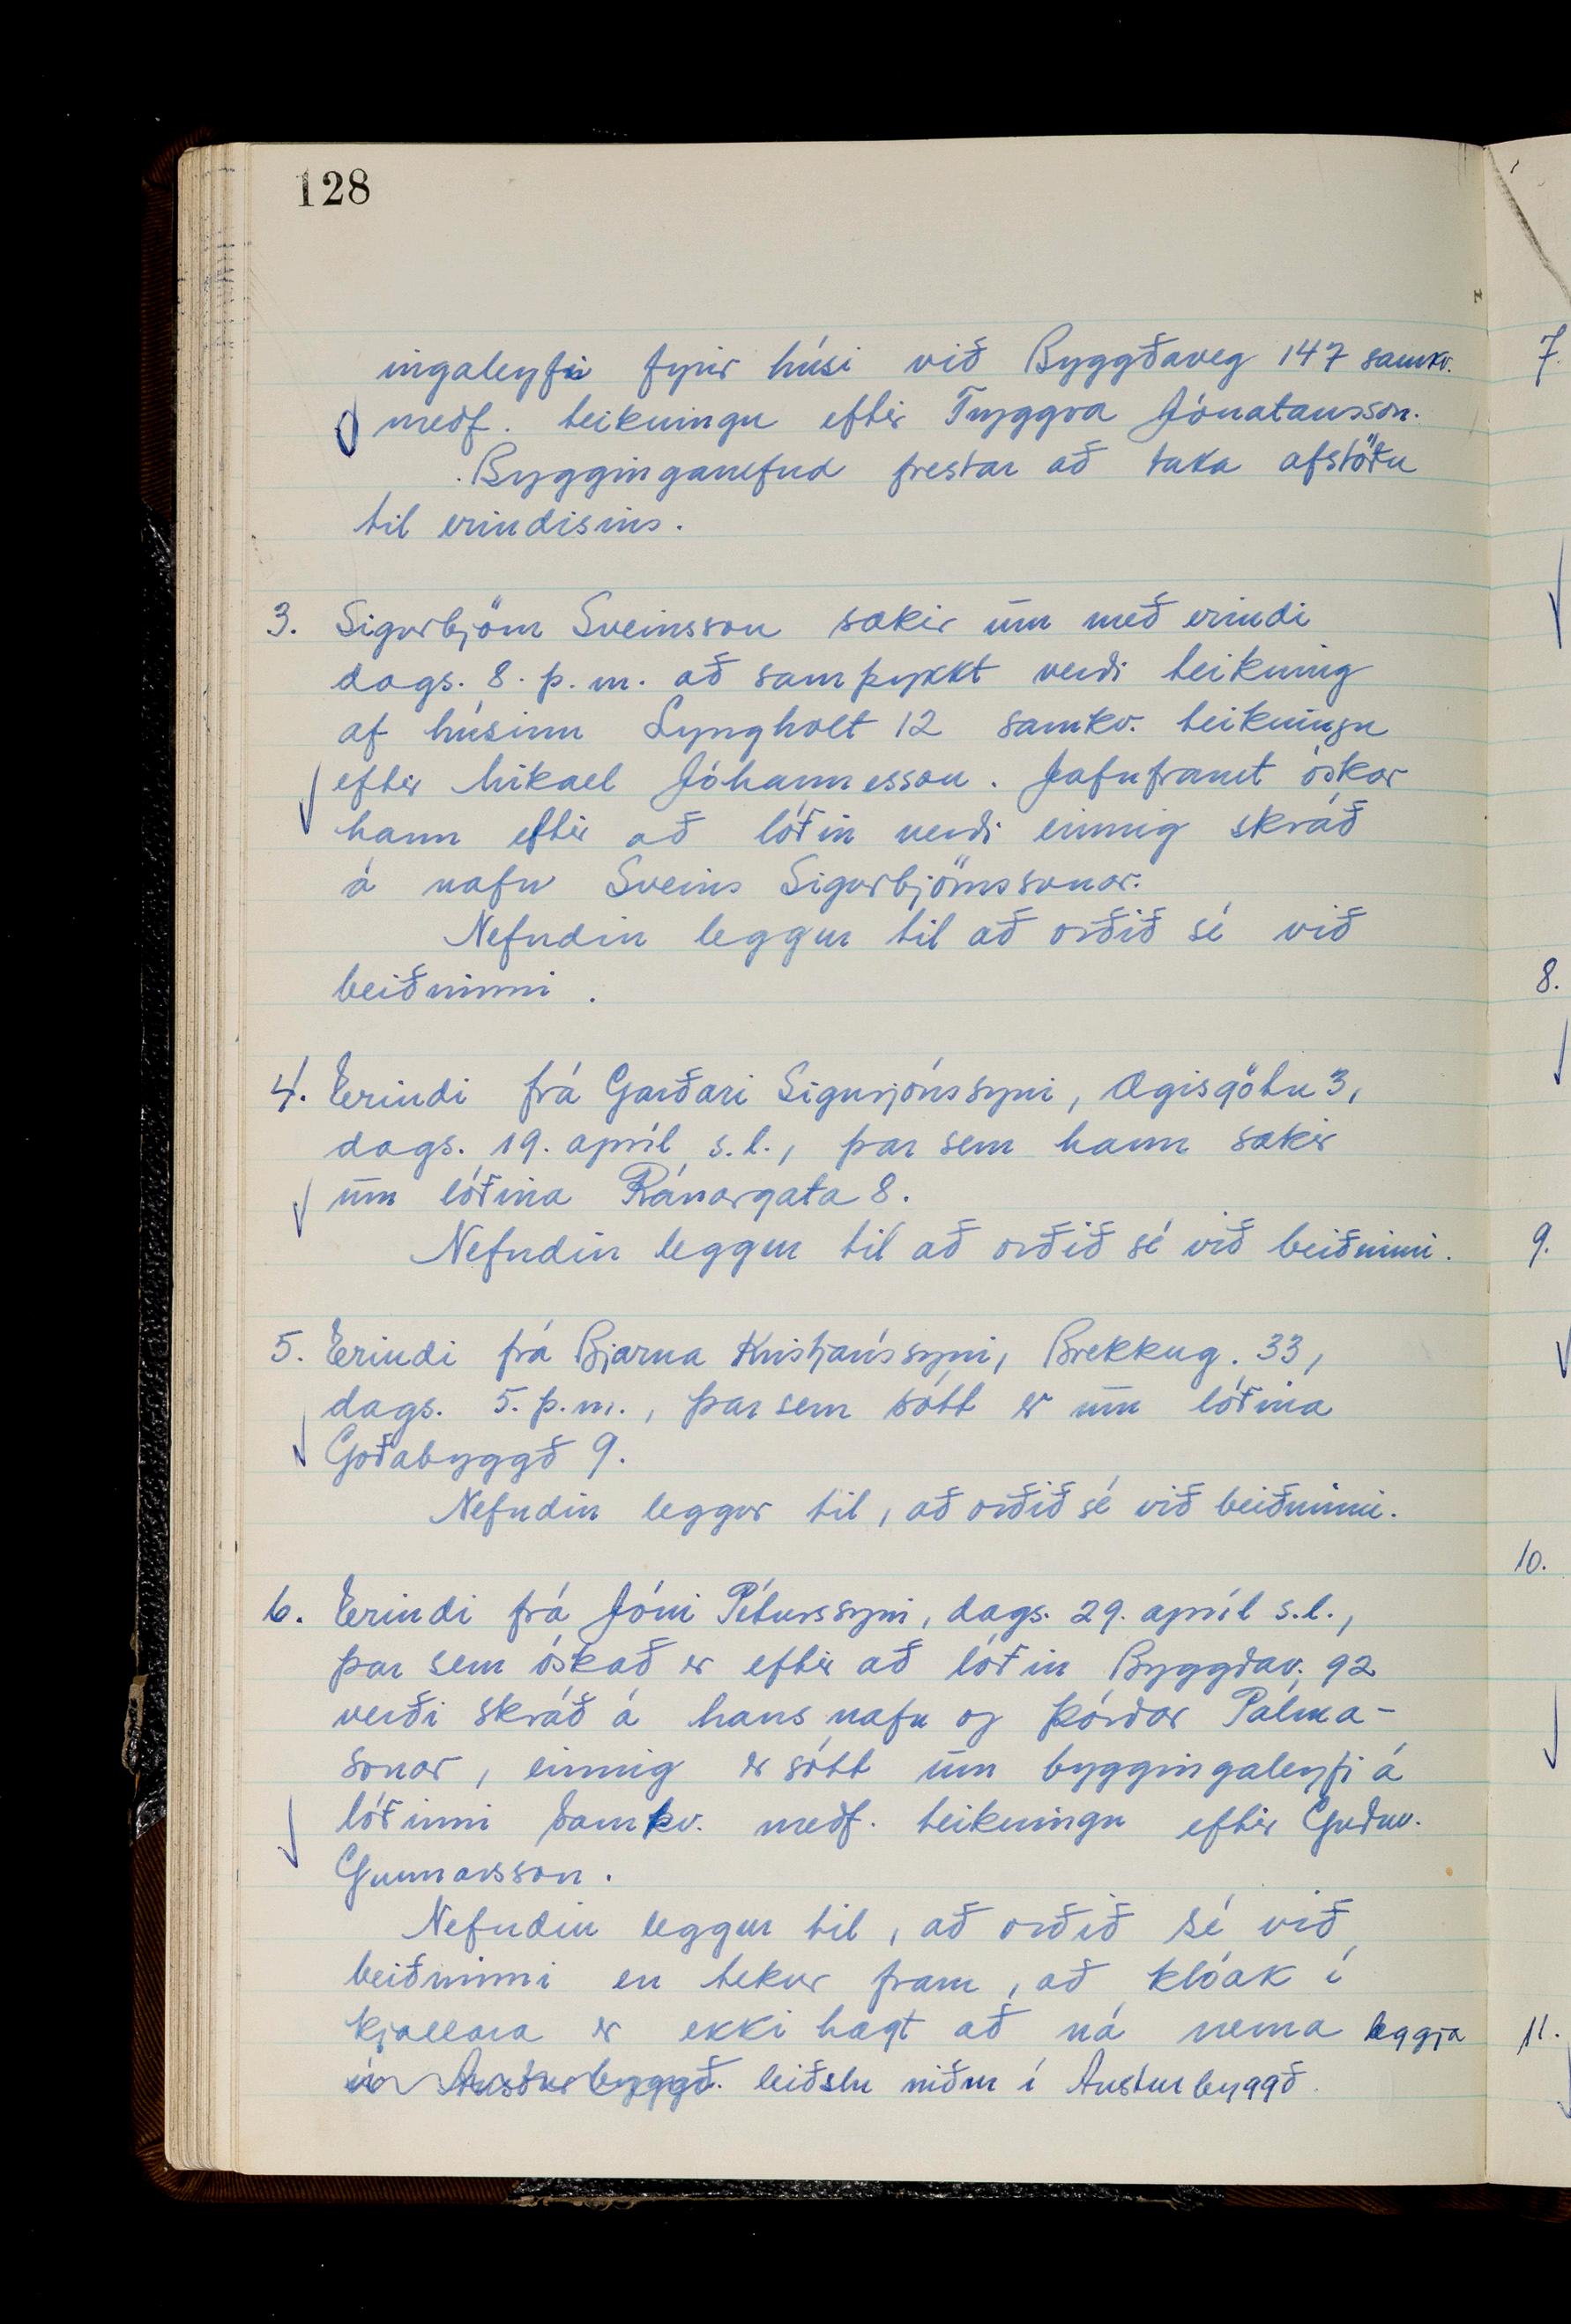 128
ingaleyfi fyrir húsi við Byggðaveg 147 samkv.
meðf. teikningu eftir Tryggva Jónatansson.
Bygginganefnd frestar að taka afstöðu
til erindisins.
3. Sigurbjörn Sveinsson sækir um með erindi
dags. 8. þ.m. að samþykkt verði teikning
af húsinu Lyngholt 12 samkv. teikningu
eftir Mikael Jóhannesson. Jafnframt óskar
hann eftir að lóðin verði einnig skráð
á nafn Sveins Sigurbjörnssonar.
Nefndin leggur til að orðið sé við
beiðninni.
4. Erindi frá Garðari Sigurjónssyni, Ægisgötu 3,
dags. 19. apríl s.l., þar sem hann sækir
um lóðina Ránargata 8.
Nefndin leggur til að orðið sé við beiðninni.
5. Erindi frá Bjarna Kristjánssyni, Brekkug. 33,
dags. 5. þ.m., þar sem sótt er um lóðina
Goðabyggð 9.
Nefndin leggur til, að orðið sé við beiðninni.
6. Erindi frá Jóni Péturssyni, dags. 29. apríl s.l.,
þar sem óskað er eftir að lóðin Byggðav. 92
verði skráð á hans nafn og Þórðar Pálma-
sonar, einnig er sótt um byggingaleyfi á
lóðinni samkv. meðf. teikningu eftir Guðm.
Gunnarsson.
Nefndin leggur til, að orðið sé við
beiðninni en tekur fram, að klóak í
kjallara er ekki hægt að ná nema leggja
úr Austurbyggð. leiðslu niður í Austurbyggð.
7.
8.
9.
10.
11.